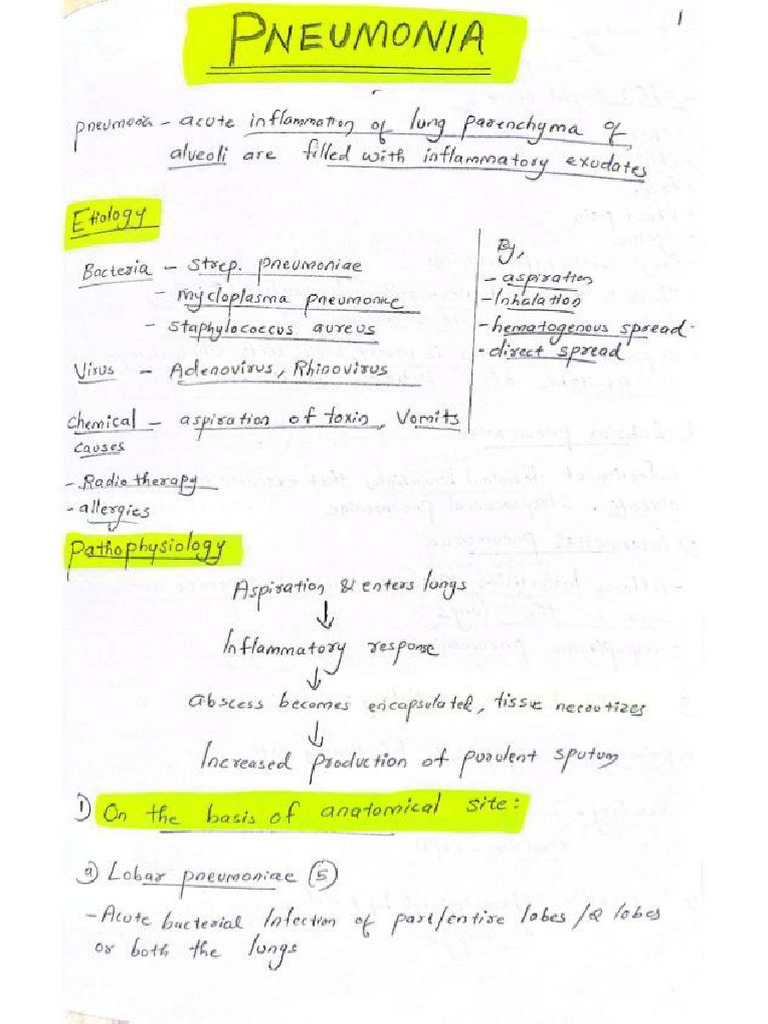 1
PNEUMONIA
pneumonia - acute inflammation of lung parenchyma of
alveoli are filled with inflammatory exudates
Etiology
Bacteria - Strep. pneumoniae
- mycloplasma pneumoniae
- Staphylococcus aureus
Virus - Adenovirus, Rhinovirus
Chemical - aspiration of toxin, Vomits
causes
- Radio therapy
- allergies
By,
- aspiration
- Inhalation
- hematogenous spread.
- direct spread
Pathophysiology
Aspiration & enters lungs
↓
Inflammatory response
↓
abscess becomes encapsulated, tissue necrotizes
↓
Increased production of purulent sputum
1) On the basis of anatomical site:
a) Lobar pneumoniae (5)
- Acute bacterial Infection of part/entire lobes /2 lobes
or both the lungs